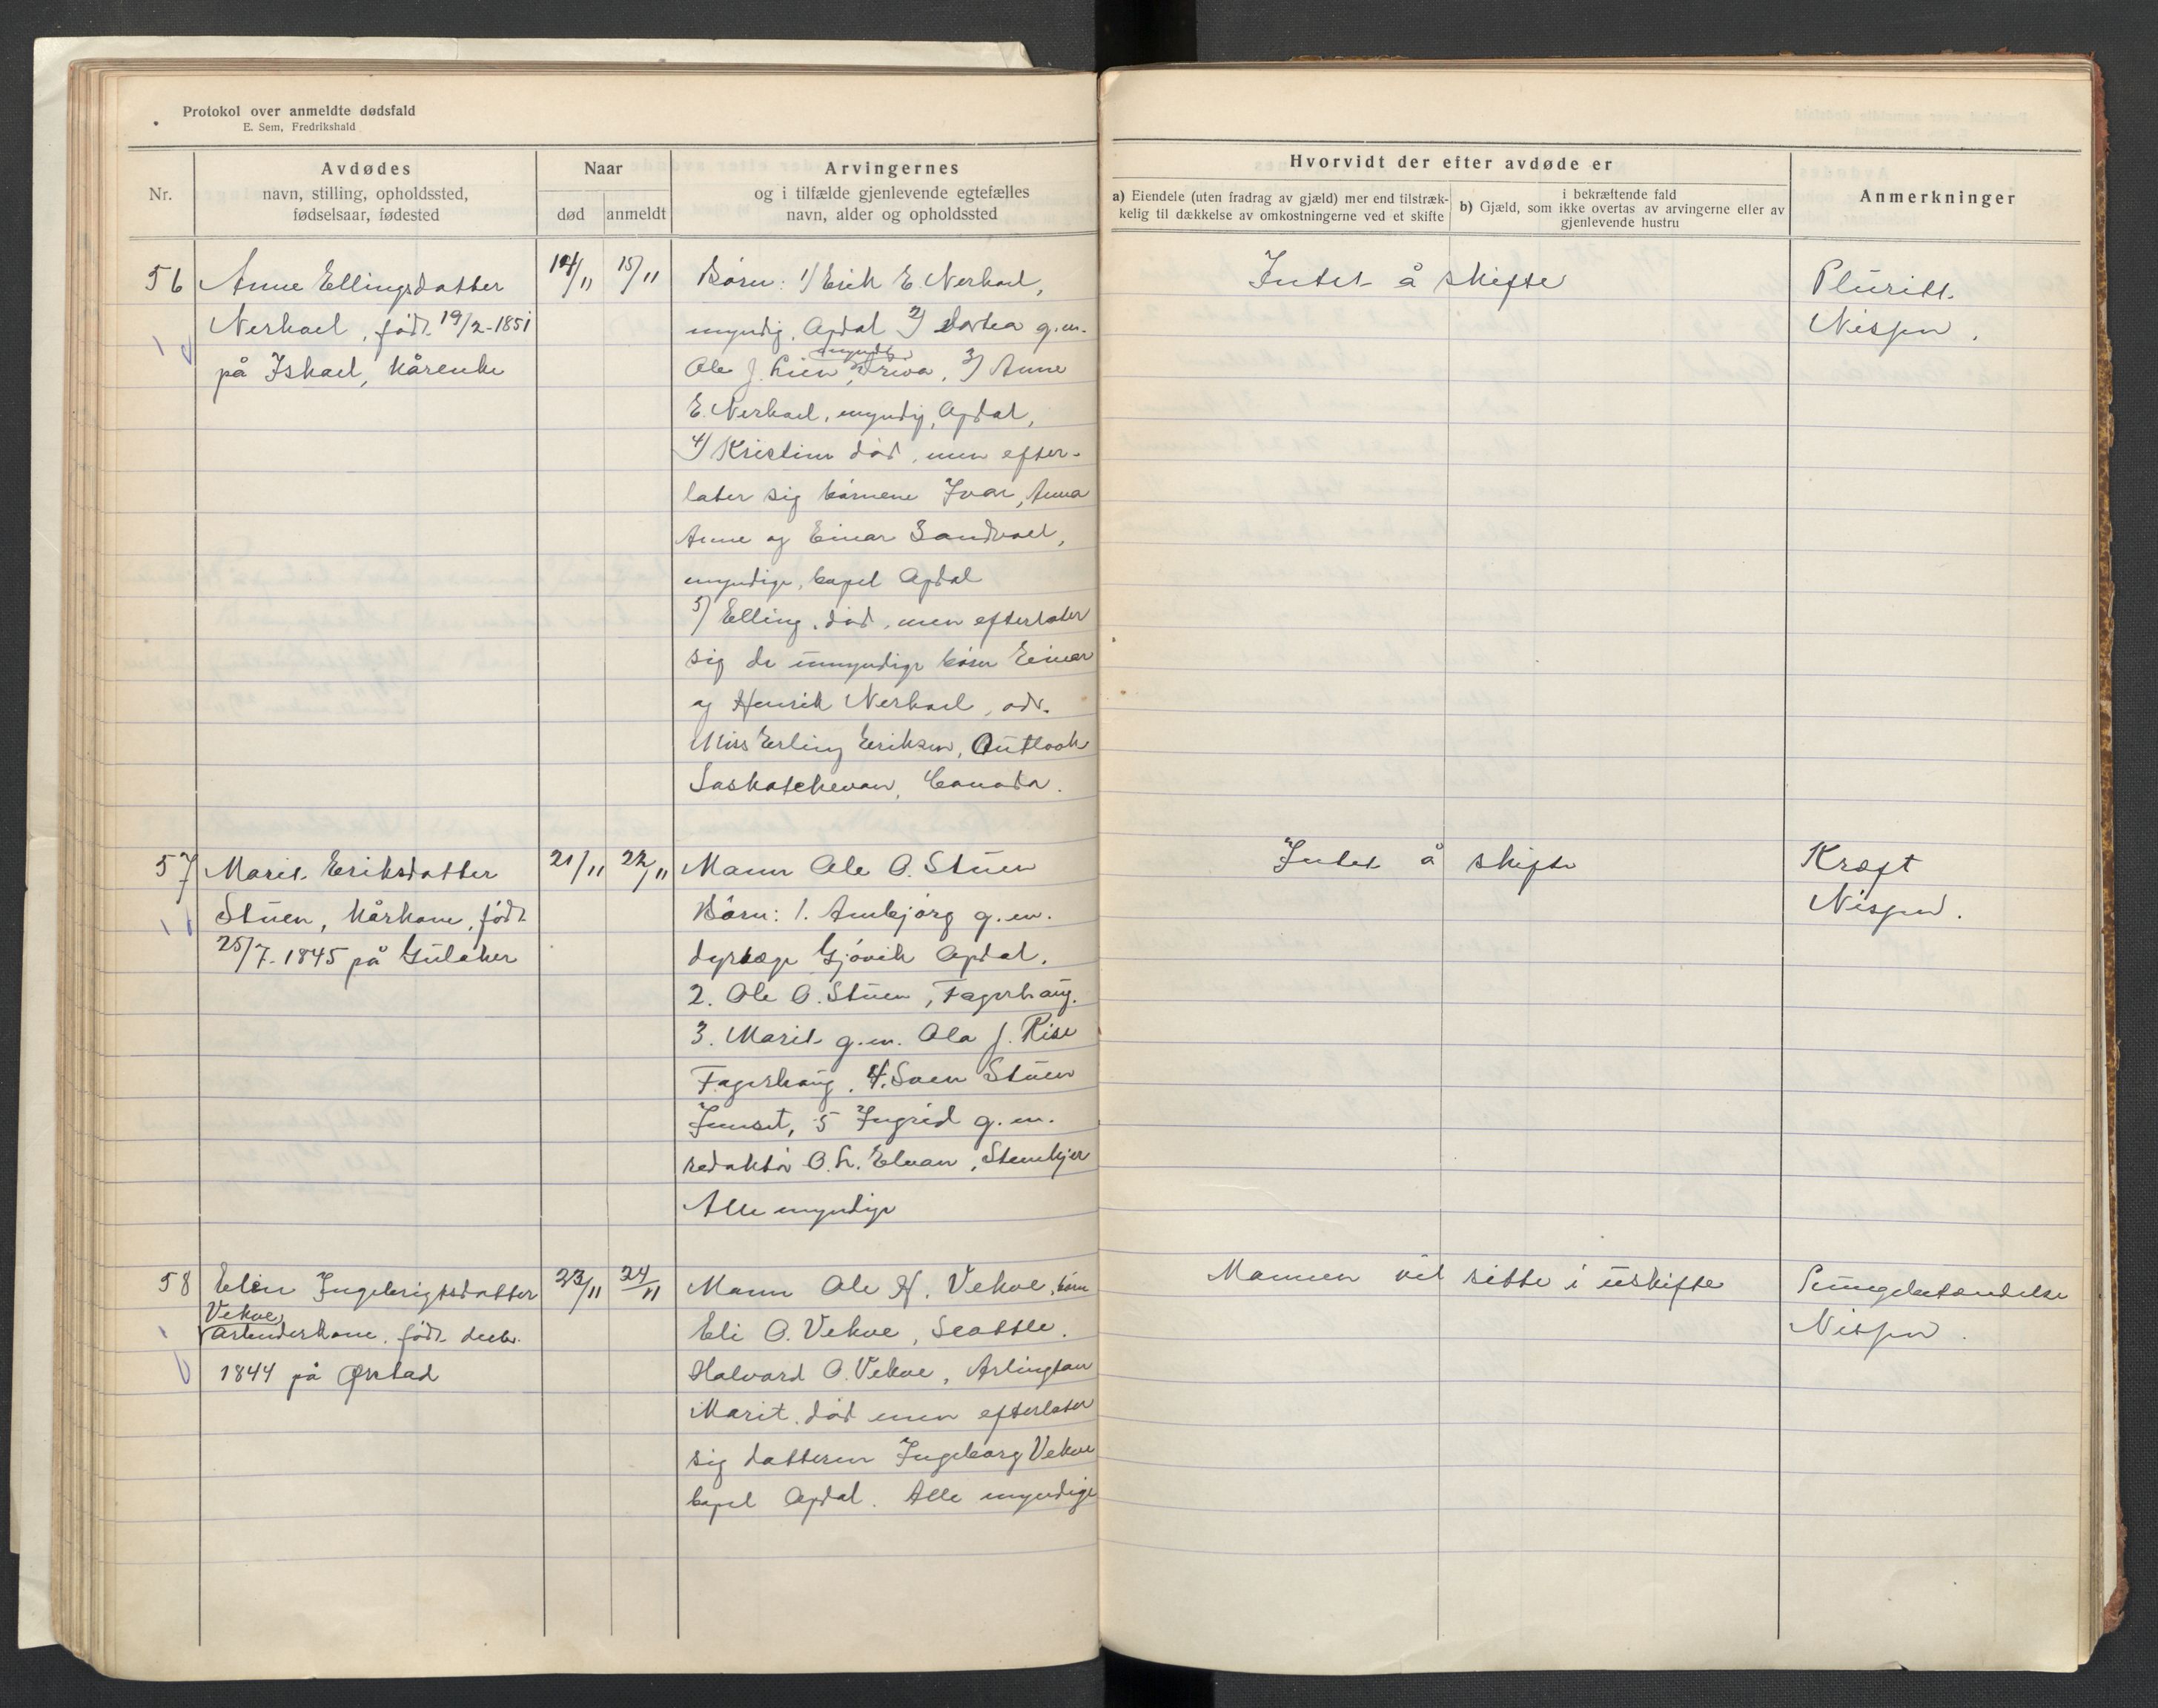 Protokol over anmeldte dødsfald
E. Sem, Fredrikshald
Nr.
Avdødes
navn, stilling, opholdssted,
fødselsaar, fødested
Naar
død
anmeldt
Arvingernes
og i tilfælde gjenlevende egtefælles
navn, alder og opholdssted
Hvorvidt der efter avdøde er
a) Eiendele (uten fradrag av gjæld) mer end tilstræk-
kelig til dækkelse av omkostningerne ved et skifte
i bekræftende fald
b) Gjæld, som ikke overtas av arvingerne eller av
gjenlevende hustru
Anmerkninger
56
Anne Ellingsdatter
Nerhoel, født 19/2-1851
på Ishoel, kårenke
14/11
15/11
Børn: 1/ Erik E. Nerhoel,
myndig, Opdal 2/ Dortea g.m.
myndig
Ole J. Lien, Driva, 3/ Anne
E. Nerhoel, myndig, Opdal,
4/ Kristine død, men efter-
later sig børnene Ivar, Anna
Anne og Einar Sandvoel,
myndige, bopel Opdal
5/ Elling, død, men efterlater
sig de umyndige børn Einar
og Henrik Nerhoel, adr.
Miss Erling Eriksen, Outlook
Saskatchevan, Canada.
Intet å skifte
Pleurit.
Nisjen.
57
Marit Eriksdatter
Stuen, kårkone, født
25/7-1845 på Gulaker
21/11
22/11
Mann Ole O. Stuen
Børn: 1. Ambjørg g.m.
dyrlæge Gjøvik Opdal.
2. Ole O. Stuen, Fagerhaug.
3. Marit g.m. Ola J. Rise
Fagerhaug, 4. Sven Stuen
Innset, 5 Ingrid g.m.
redaktør O. L. Elvan, Stenkjer
Alle myndige
Intet å skifte
Kræft
Nisjen.
58
Elin Ingebrigtsdatter
Vekve,
arbeiderkone, født decbr.
1844 på Ørstad
23/11
24/11
Mann Ole H. Vekve, børn
Eli O. Vekve, Seattle.
Halvard O. Vekve, Arlington
Marit, død men efterlater
sig datteren Ingeborg Vekve
bopel Opdal. Alle myndige
Mannen vil sitte i uskifte
Lungebetændelse
Nisjen.